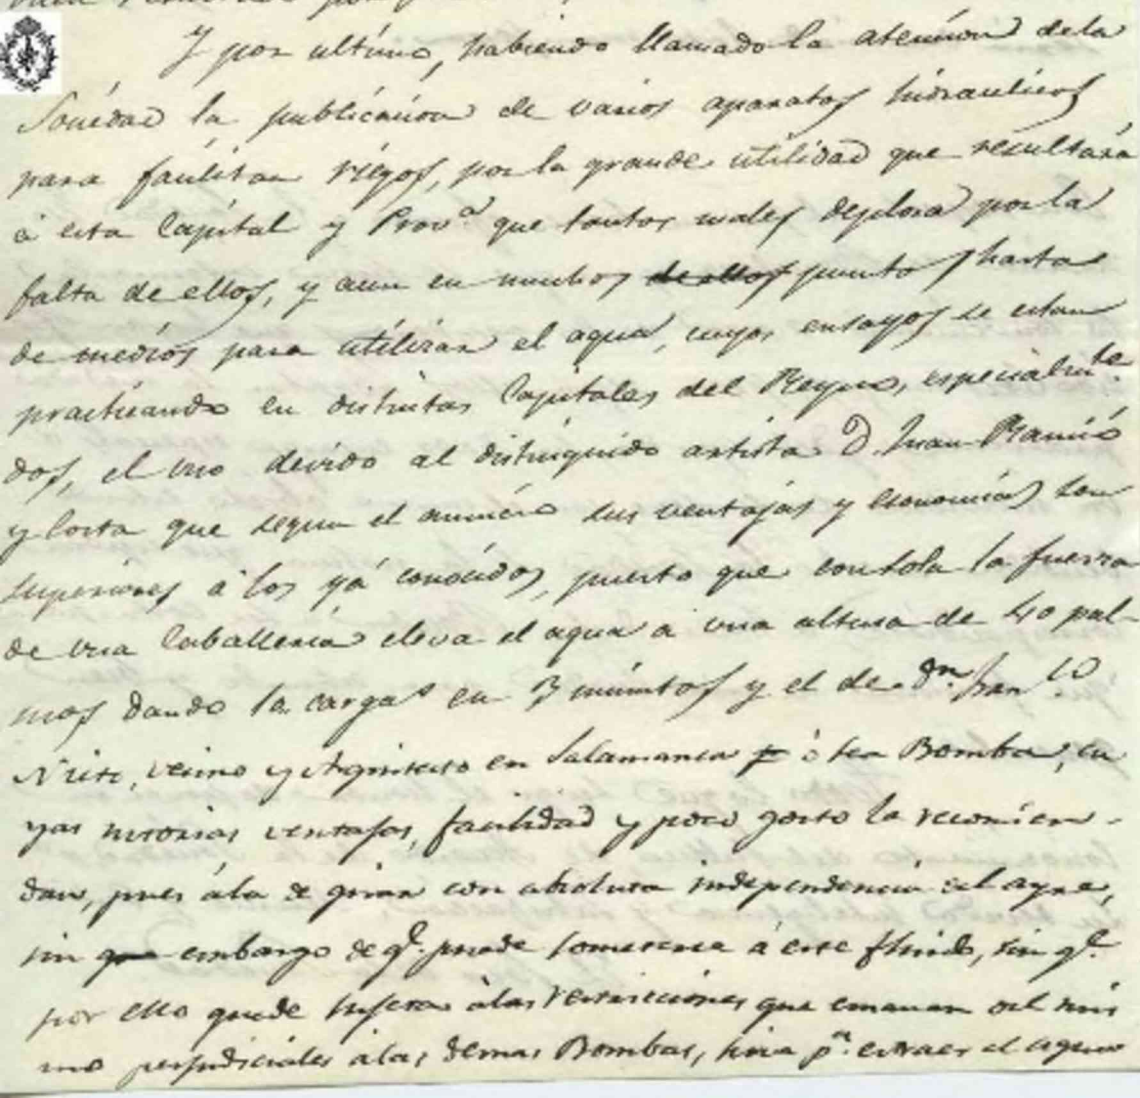 Y por ultimo, habiendo llamado la atencion de la
Sociedad la publicacion de varios aparatos hidraulicos
para facilitar riegos, por la grande utilidad que resultára
á esta Capital y Prov.ª que tantos males deplora por la
falta de ellos, y aun en muchos de ellos puntos hasta
de medios para utilizar el agua, cuyos ensayos se estan
practicando en distintas Capitales del Reyno, especialm.te
dos, el uno devido al distinguido artista D. Juan Ramió
y Costa que segun el anuncio sus ventajas y economía son
superiores á los yá conocidos, puesto que con sola la fuerza
de una Caballeria eleva el agua á una altura de 40 pal-
mos dando la carga en 3 minutos y el de D.n Fran.co
vecino y Arquitecto en Salamanca ó sea Bomba, cu
yas notorias ventajas, facilidad y poco gasto la recomien-
dan, pues á la de girar con absoluta independencia del ayre,
sin que embargo de q.e puede someterse á este fluido, sin q.e
por ello quede sugeta á las restricciones que emanan del mis
mo perjudiciales á las demas Bombas, sirve p.a extraer el agua